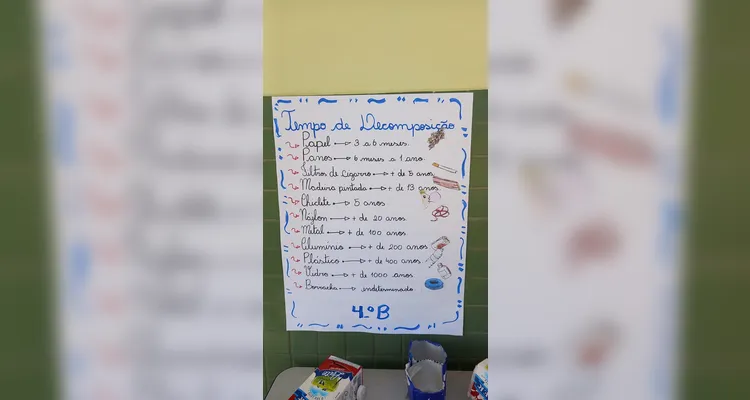 Tempo de Decomposição
Papel → 3 a 6 meses.
Panos → 6 meses a 1 ano.
Filtros de Cigarro → + de 5 anos
Madeira pintada → + de 13 anos
Chiclete → 5 anos.
Náylon → + de 20 anos.
Metal → + de 100 anos.
Alumínio → + de 200 anos.
Plástico → + de 400 anos.
Vidro → + de 1000 anos.
Borracha → indeterminado.
4.º B